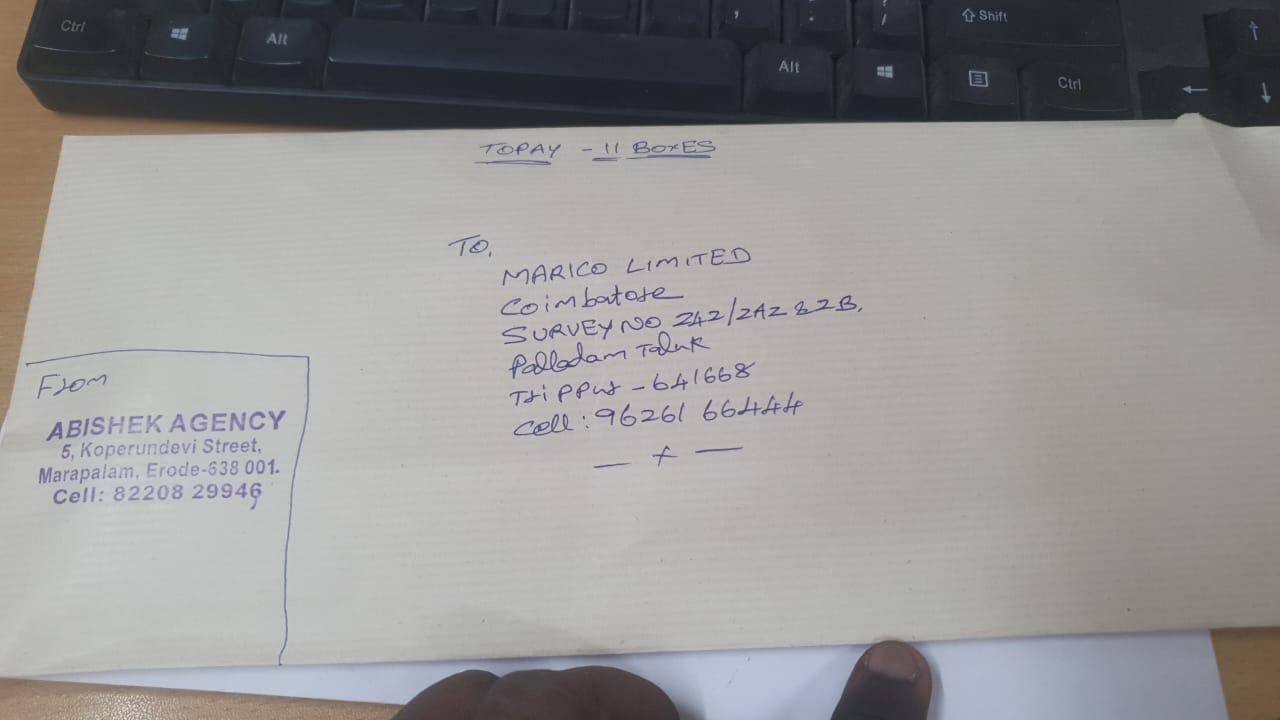 Ctrl
Alt
Alt
Shift
Ctrl
TOPAY - 11 BOXES
TO,
MARICO LIMITED
Coimbatore
SURVEY NO 242/2A2 & 2B.
Palladam Taluk
Trippur - 641668
Cell: 96261 66444
From
ABISHEK AGENCY
5, Koperundevi Street,
Marapalam, Erode-638 001.
Cell: 82208 29946